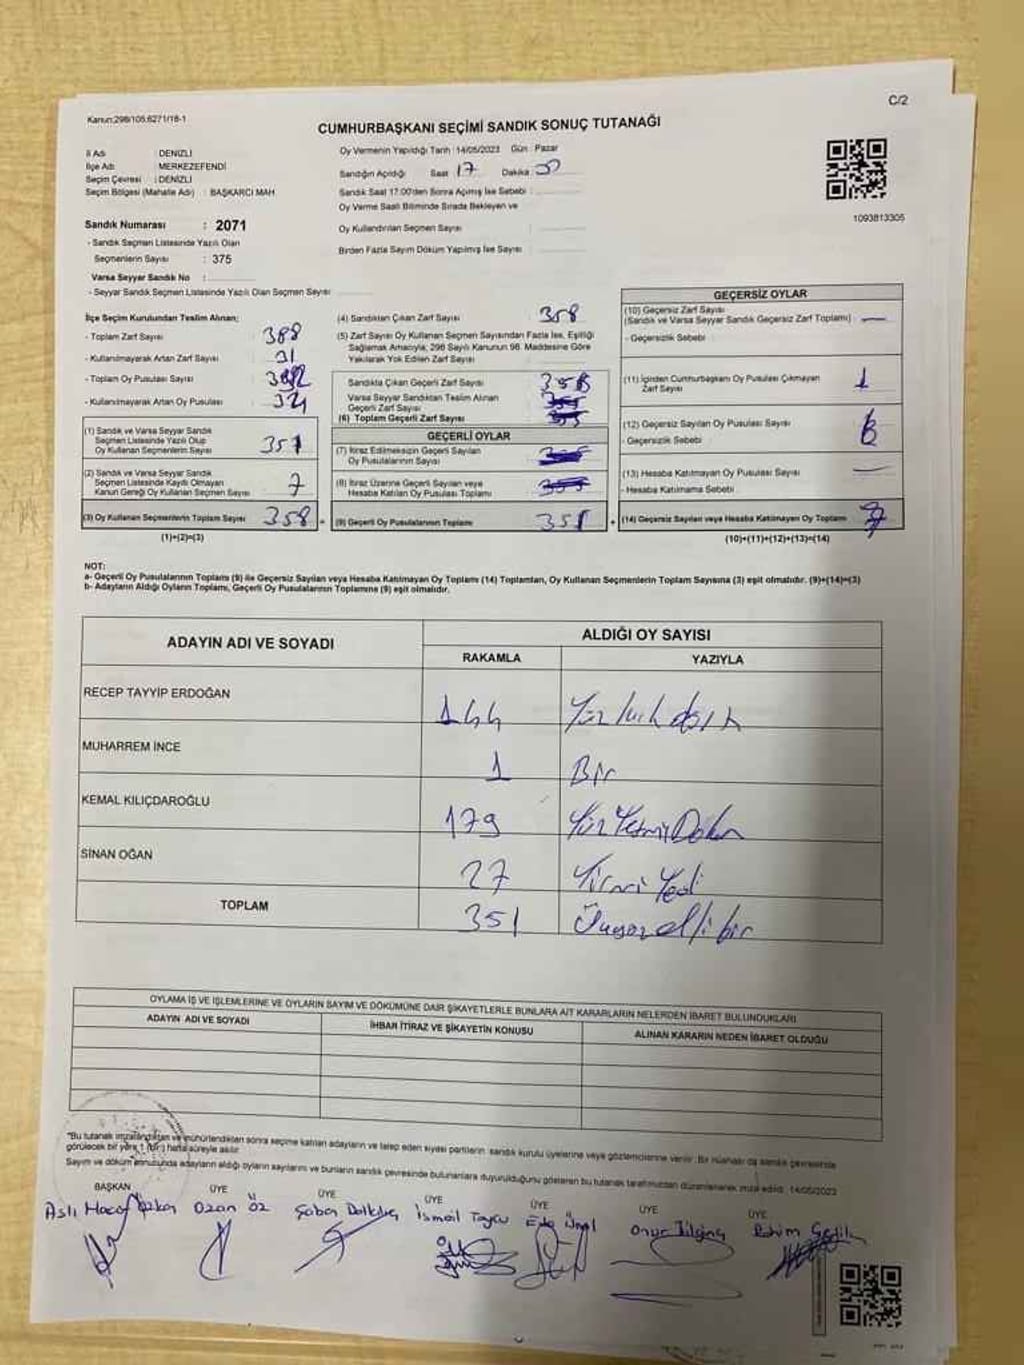 C/2
Kanun:298/105,6271/18-1
CUMHURBAŞKANI SEÇİMİ SANDIK SONUÇ TUTANAĞI
İl Adı : DENİZLİ
İlçe Adı : MERKEZEFENDİ
Seçim Çevresi : DENİZLİ
Seçim Bölgesi (Mahalle Adı) : BAŞKARCI MAH.
Sandık Numarası : 2071
- Sandık Seçmen Listesinde Yazılı Olan
Seçmenlerin Sayısı : 375
Varsa Seyyar Sandık No :
- Seyyar Sandık Seçmen Listesinde Yazılı Olan Seçmen Sayısı
Oy Vermenin Yapıldığı Tarih : 14/05/2023 Gün : Pazar
Sandığın Açıldığı Saat 17 Dakika
Sandık Saat 17:00'den Sonra Açılmış İse Sebebi :
Oy Verme Saati Bitiminde Sırada Bekleyen ve
Oy Kullandırılan Seçmen Sayısı :
Birden Fazla Sayım Döküm Yapılmış İse Sayısı :
1093813305
İlçe Seçim Kurulundan Teslim Alınan;
- Toplam Zarf Sayısı 388
- Kullanılmayarak Artan Zarf Sayısı 31
- Toplam Oy Pusulası Sayısı
- Kullanılmayarak Artan Oy Pusulası
(1) Sandık ve Varsa Seyyar Sandık
Seçmen Listesinde Yazılı Olup
Oy Kullanan Seçmenlerin Sayısı 351
(2) Sandık ve Varsa Seyyar Sandık
Seçmen Listesinde Kaydı Olmayan
Kanun Gereği Oy Kullanan Seçmen Sayısı 7
(3) Oy Kullanan Seçmenlerin Toplam Sayısı 358
(1)+(2)=(3)
(4) Sandıktan Çıkan Zarf Sayısı 358
(5) Zarf Sayısı Oy Kullanan Seçmen Sayısından Fazla İse, Eşitliği
Sağlamak Amacıyla; 298 Sayılı Kanunun 98. Maddesine Göre
Yakılarak Yok Edilen Zarf Sayısı
Sandıkta Çıkan Geçerli Zarf Sayısı 358
Varsa Seyyar Sandıktan Teslim Alınan
Geçerli Zarf Sayısı
(6) Toplam Geçerli Zarf Sayısı
GEÇERLİ OYLAR
(7) İtiraz Edilmeksizin Geçerli Sayılan
Oy Pusulalarının Sayısı
(8) İtiraz Üzerine Geçerli Sayılan veya
Hesaba Katılan Oy Pusulası Toplamı
= (9) Geçerli Oy Pusulalarının Toplamı 351 +
GEÇERSİZ OYLAR
(10) Geçersiz Zarf Sayısı
(Sandık ve Varsa Seyyar Sandık Geçersiz Zarf Toplamı) —
- Geçersizlik Sebebi :
(11) İçinden Cumhurbaşkanı Oy Pusulası Çıkmayan
Zarf Sayısı 1
(12) Geçersiz Sayılan Oy Pusulası Sayısı
- Geçersizlik Sebebi :
(13) Hesaba Katılmayan Oy Pusulası Sayısı —
- Hesaba Katılmama Sebebi :
(14) Geçersiz Sayılan veya Hesaba Katılmayan Oy Toplamı
(10)+(11)+(12)+(13)=(14)
NOT:
a- Geçerli Oy Pusulalarının Toplamı (9) ile Geçersiz Sayılan veya Hesaba Katılmayan Oy Toplamı (14) Toplamları, Oy Kullanan Seçmenlerin Toplam Sayısına (3) eşit olmalıdır. (9)+(14)=(3)
b- Adayların Aldığı Oyların Toplamı, Geçerli Oy Pusulalarının Toplamına (9) eşit olmalıdır.
ADAYIN ADI VE SOYADI
ALDIĞI OY SAYISI
RAKAMLA YAZIYLA
RECEP TAYYİP ERDOĞAN 144 Yüz kırk dört
MUHARREM İNCE 1 Bir
KEMAL KILIÇDAROĞLU 179 Yüz Yetmiş Dokuz
SİNAN OĞAN 27 Yirmi Yedi
TOPLAM 351 Üçyüz elli bir
OYLAMA İŞ VE İŞLEMLERİNE VE OYLARIN SAYIM VE DÖKÜMÜNE DAİR ŞİKAYETLERLE BUNLARA AİT KARARLARIN NELERDEN İBARET BULUNDUKLARI
ADAYIN ADI VE SOYADI İHBAR İTİRAZ VE ŞİKAYETİN KONUSU ALINAN KARARIN NEDEN İBARET OLDUĞU
"Bu tutanak imzalandıktan ve mühürlendikten sonra seçime katılan adayların ve talep eden siyasi partilerin sandık kurulu üyelerine veya gözlemcilerine verilir. Bir nüshası da sandık çevresinde
görülecek bir yere 1 (bir) hafta süreyle asılır.
Sayım ve döküm sonucunda adayların aldığı oyların sayılarını ve bunların sandık çevresinde bulunanlara duyurulduğunu gösteren bu tutanak tarafımızdan düzenlenerek imza edildi. 14/05/2023
BAŞKAN ÜYE ÜYE ÜYE ÜYE ÜYE ÜYE
Aslı Ozan Öz Şaban Dalkılıç İsmail Taycu Eda Ünal Onur Bilginç Rahim Gedik